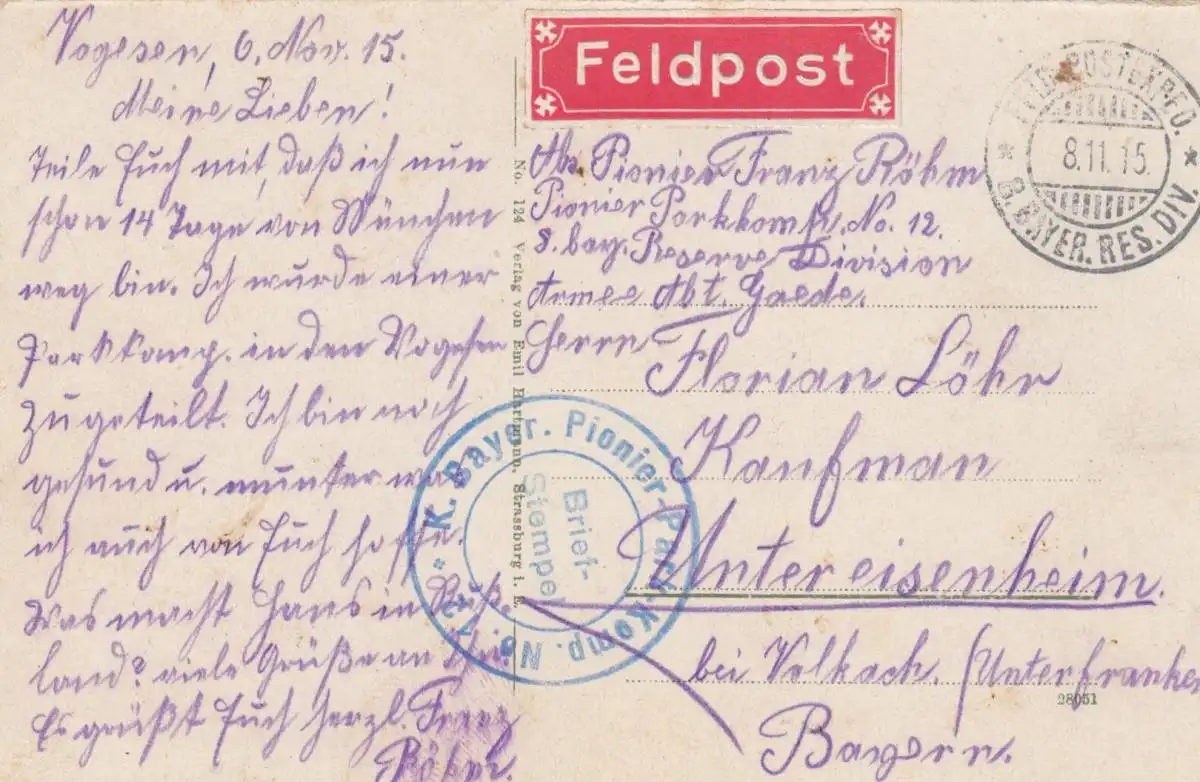 Vogesen, 6. Nov. 15.
Meine Lieben!
Teile Euch mit, daß ich nun
schon 14 Tage von München
weg bin. Ich wurde einer
Parkkomp. in den Vogesen
zugeteilt. Ich bin noch
gesund u. munter was
ich auch von Euch hoffe.
Was macht Hans in Ruß-
land? viele Grüße an ihn.
Es grüßt Euch herzl. Franz
Röhm.
No. 124 Verlag von Emil Hartmann, Strassburg i. E.
Feldpost
FELD-POSTEXPED.
8.11.15.
* 8. BAYER. RES. DIV. *
Abs. Pionier Franz Röhm
Pionier Parkkomp. No. 12.
8. bay. Reserve Division
Armee Abt. Gaede.
Herrn
Florian Löhr
Kaufman
Untereisenheim.
bei Volkach. (Unterfranken
Bayern.
K. Bayer. Pionier-Park-Komp. No. 12.
Brief-
Stempel
28051